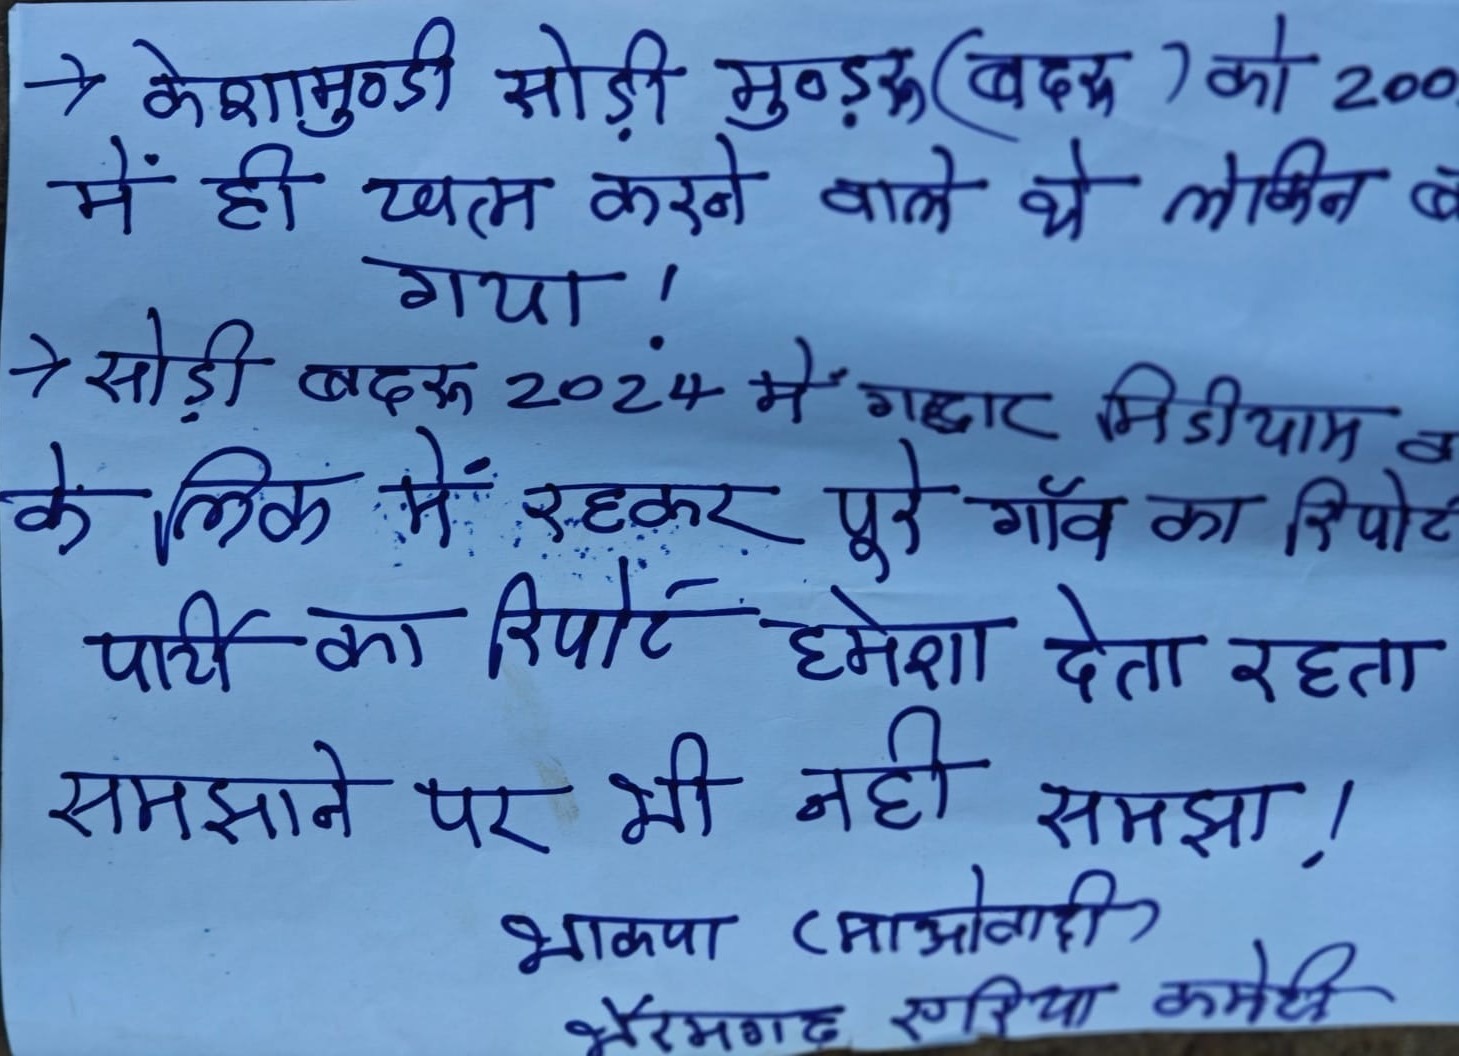 → केशामुण्डी सोड़ी मुण्ड़रू (बदरू) को 200
में ही खत्म करने वाले थे लेकिन
गया!
→ सोड़ी बदरू 2024 में गद्दार मिडीयाम
के लिंक में रहकर पूरे गाँव का रिपोर्ट
पार्टी का रिपोर्ट हमेशा देता रहता
समझाने पर भी नही समझा!
भाकपा (माओवादी)
भैरमगढ एरिया कमेटी